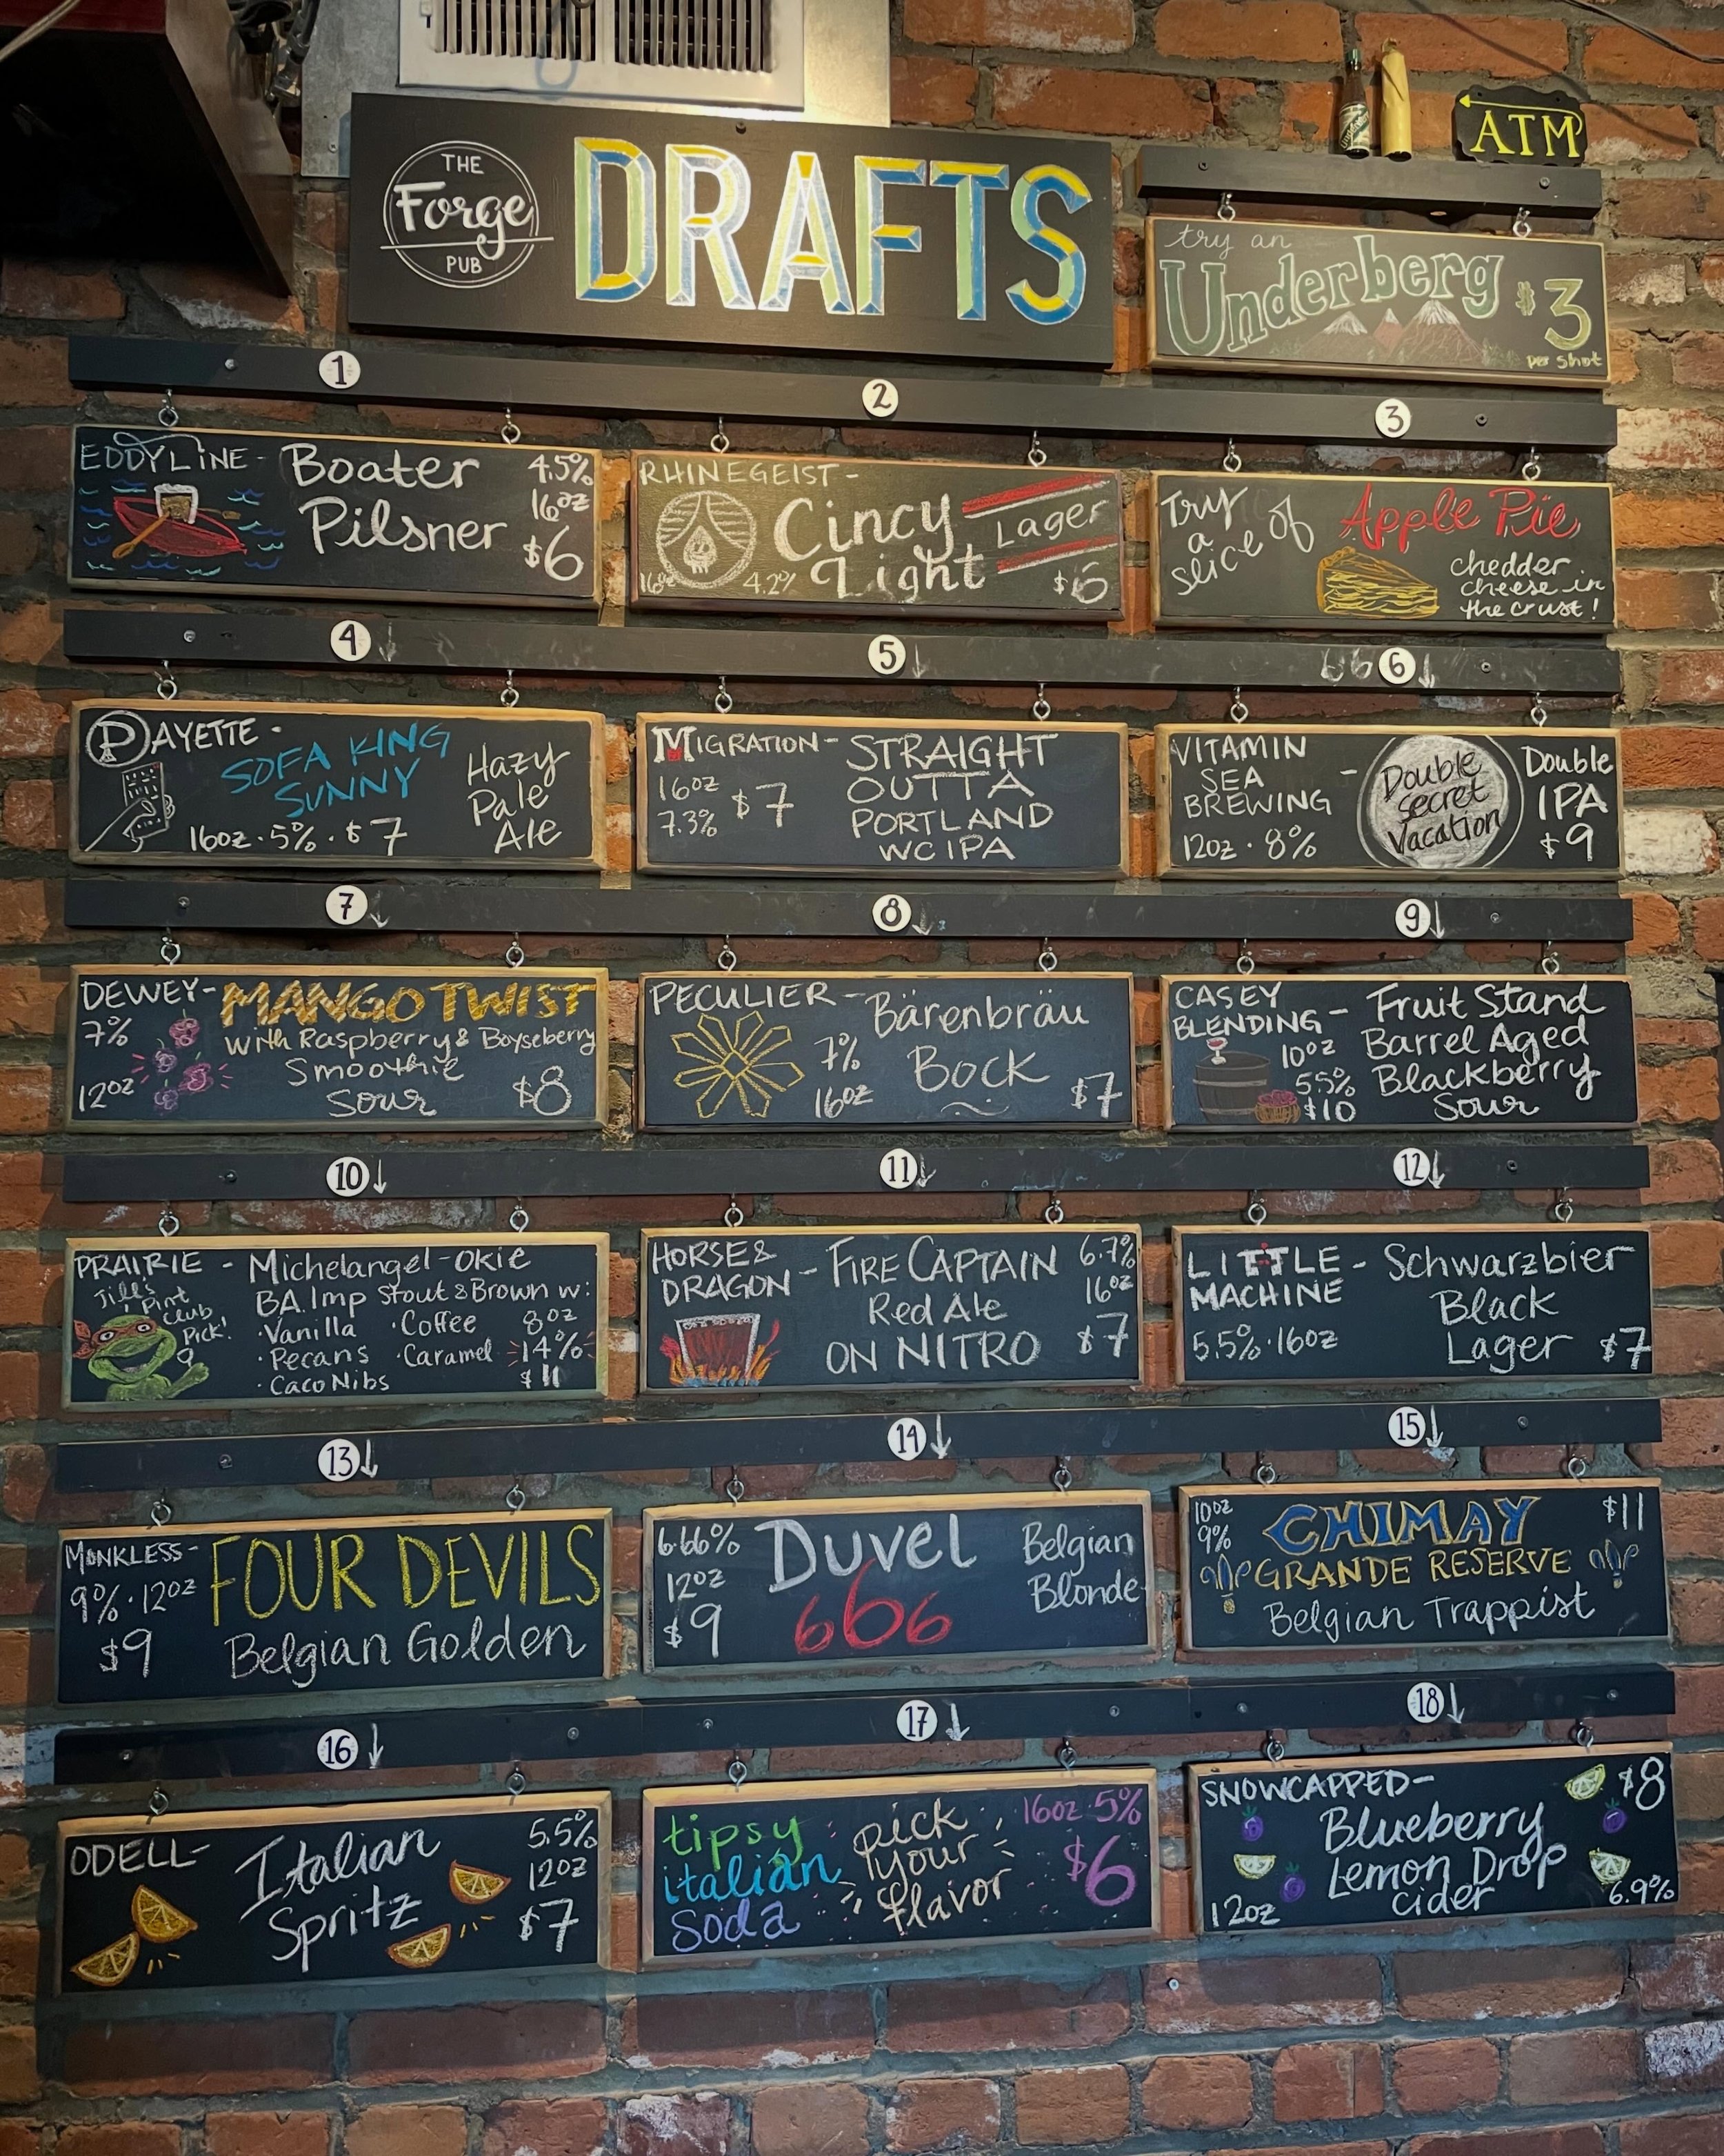 THE
Forge
PUB
DRAFTS
ATM
try an
Underberg $3
per shot
1
EDDYLINE - Boater 4.5%
Pilsner 16oz
$6
2
RHINEGEIST -
Cincy Lager
Light
16oz 4.2% $6
3
Try a slice of Apple Pie
chedder
cheese in
the crust!
4
PAYETTE -
SOFA KING
SUNNY
Hazy
Pale
Ale
16oz · 5% · $7
5
MIGRATION - STRAIGHT
OUTTA
PORTLAND
WC IPA
16oz
7.3% $7
66 6
VITAMIN
SEA
BREWING -
Double
Secret
Vacation
Double
IPA
$9
12oz · 8%
7
DEWEY - MANGO TWIST
7% with Raspberry & Boyseberry
Smoothie
12oz Sour $8
8
PECULIER - Bärenbräu
7% Bock
16oz $7
9
CASEY
BLENDING - Fruit Stand
Barrel Aged
Blackberry
Sour
10oz
5.5%
$10
10
PRAIRIE - Michelangel-okie
BA. Imp Stout & Brown w:
Jill's
Pint
Club
Pick!
·Vanilla ·Coffee 8oz
·Pecans ·Caramel 14%
·Caco Nibs $11
11
HORSE &
DRAGON - FIRE CAPTAIN 6.7%
Red Ale 16oz
ON NITRO $7
12
LITTLE
MACHINE - Schwarzbier
Black
5.5% · 16oz Lager $7
13
MONKLESS - FOUR DEVILS
9% · 12oz
$9 Belgian Golden
14
6.66% Duvel Belgian
12oz 666 Blonde
$9
15
10oz CHIMAY $11
9%
GRANDE RESERVE
Belgian Trappist
16
ODELL - Italian 5.5%
Spritz 12oz
$7
17
tipsy pick 16oz 5%
italian your $6
soda flavor
18
SNOWCAPPED - $8
Blueberry
Lemon Drop
Cider
12oz 6.9%